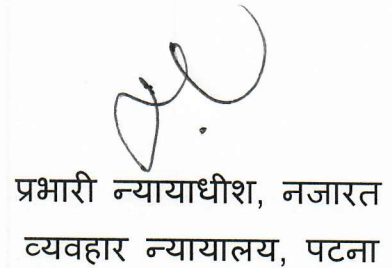 प्रभारी न्यायाधीश, नजारत
व्यवहार न्यायालय, पटना